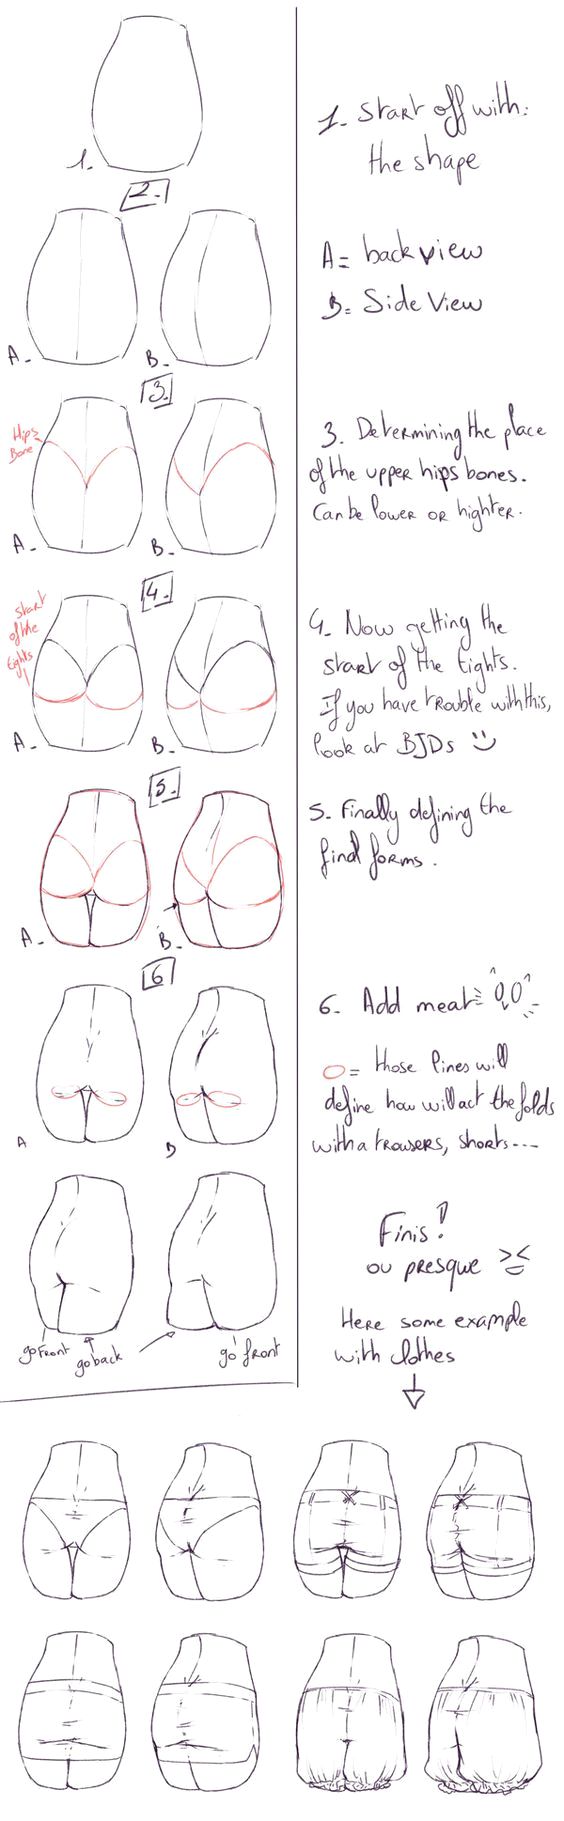 1.
1. Start off with:
the shape
2.
A= back view
B= Side View
A-
B-
3.
Hips
Bone
3. Determining the place
of the upper hips bones.
Can be lower or highter.
A-
B-
4.
start
of the
tights
4. Now getting the
start of the tights.
If you have trouble with this,
look at BJDs
A-
B-
5.
5. Finally defining the
final forms.
A-
B-
6
6- Add meat
= those lines will
define how will act the folds
with a trousers, shorts----
A
B
Finis!
ou presque ><
Here some example
with clothes
go Front
go back
go front